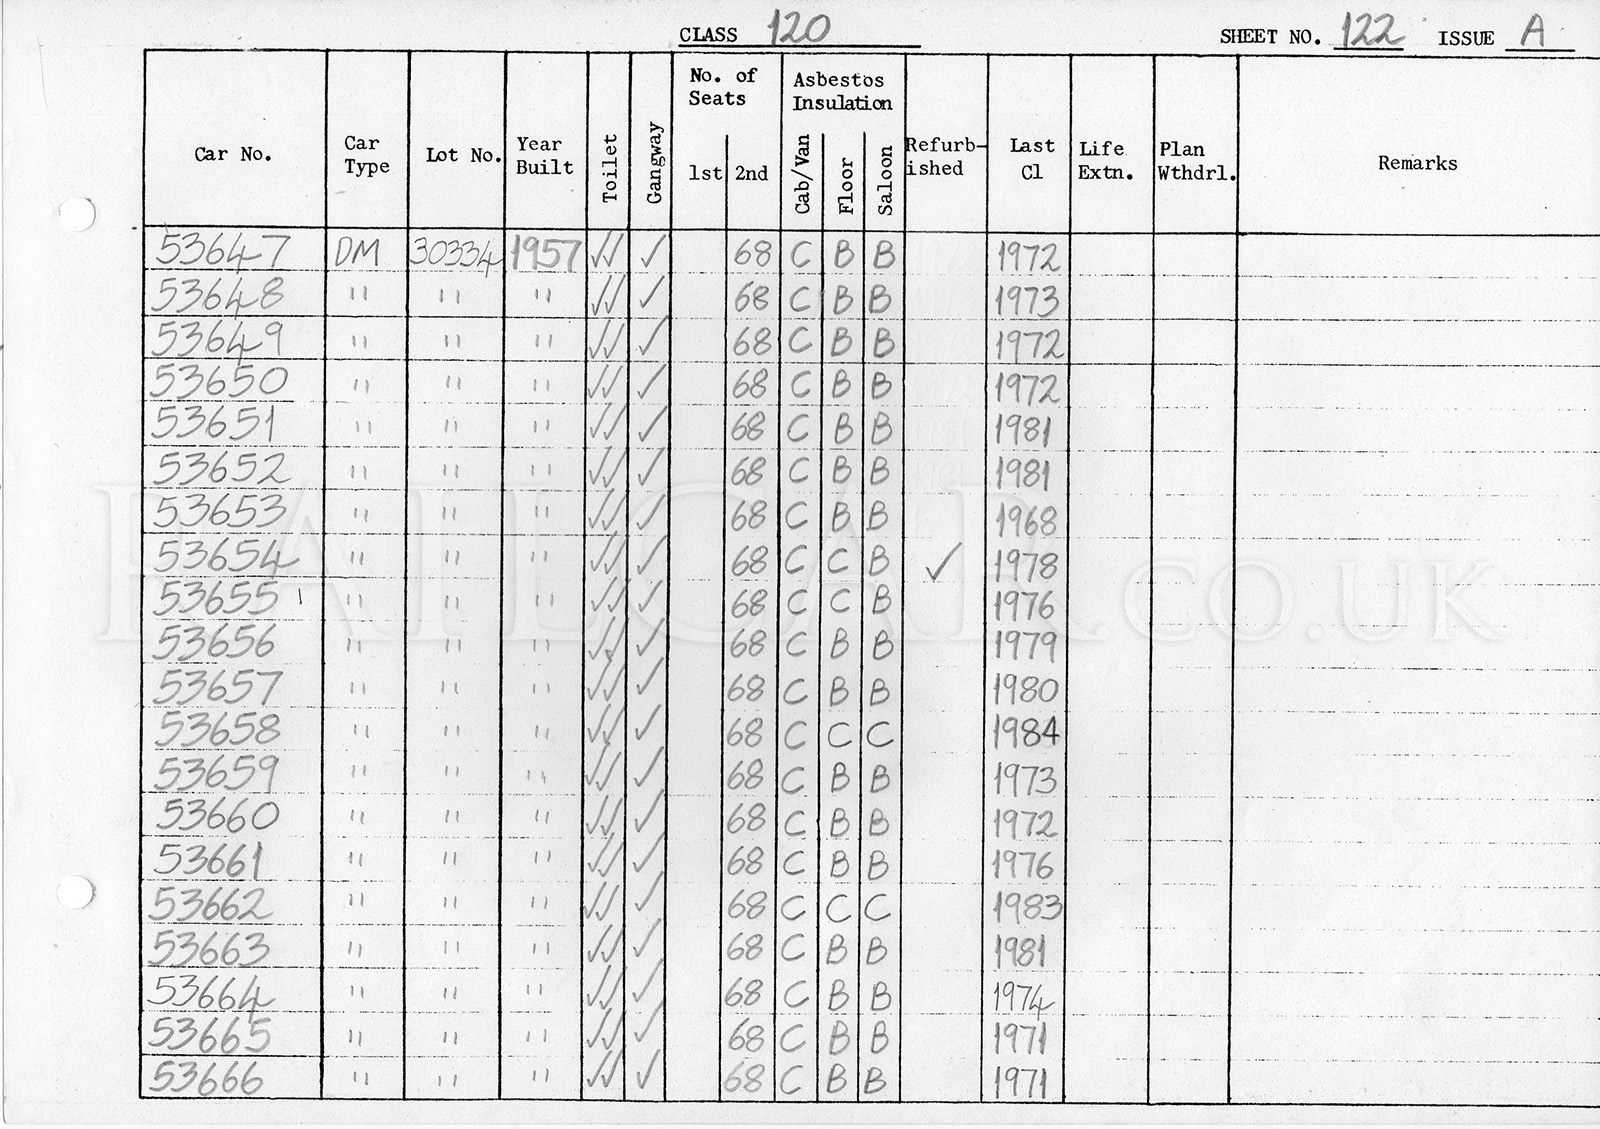 CLASS 120 SHEET NO. 122 ISSUE A
Car No. Car Type Lot No. Year Built Toilet Gangway No. of Seats 1st 2nd Asbestos Insulation Cab/Van Floor Saloon Refurb-ished Last Cl Life Extn. Plan Wthdrl. Remarks
53647 DM 30334 1957 ✓✓ ✓ 68 C B B 1972
53648 " " " ✓✓ ✓ 68 C B B 1973
53649 " " " ✓✓ ✓ 68 C B B 1972
53650 " " " ✓✓ ✓ 68 C B B 1972
53651 " " " ✓✓ ✓ 68 C B B 1981
53652 " " " ✓✓ ✓ 68 C B B 1981
53653 " " " ✓✓ ✓ 68 C B B 1968
53654 " " " ✓✓ ✓ 68 C C B ✓ 1978
53655 " " " ✓✓ ✓ 68 C C B 1976
53656 " " " ✓✓ ✓ 68 C B B 1979
53657 " " " ✓✓ ✓ 68 C B B 1980
53658 " " " ✓✓ ✓ 68 C C C 1984
53659 " " " ✓✓ ✓ 68 C B B 1973
53660 " " " ✓✓ ✓ 68 C B B 1972
53661 " " " ✓✓ ✓ 68 C B B 1976
53662 " " " ✓✓ ✓ 68 C C C 1983
53663 " " " ✓✓ ✓ 68 C B B 1981
53664 " " " ✓✓ ✓ 68 C B B 1974
53665 " " " ✓✓ ✓ 68 C B B 1971
53666 " " " ✓✓ ✓ 68 C B B 1971
RAILCAR.CO.UK